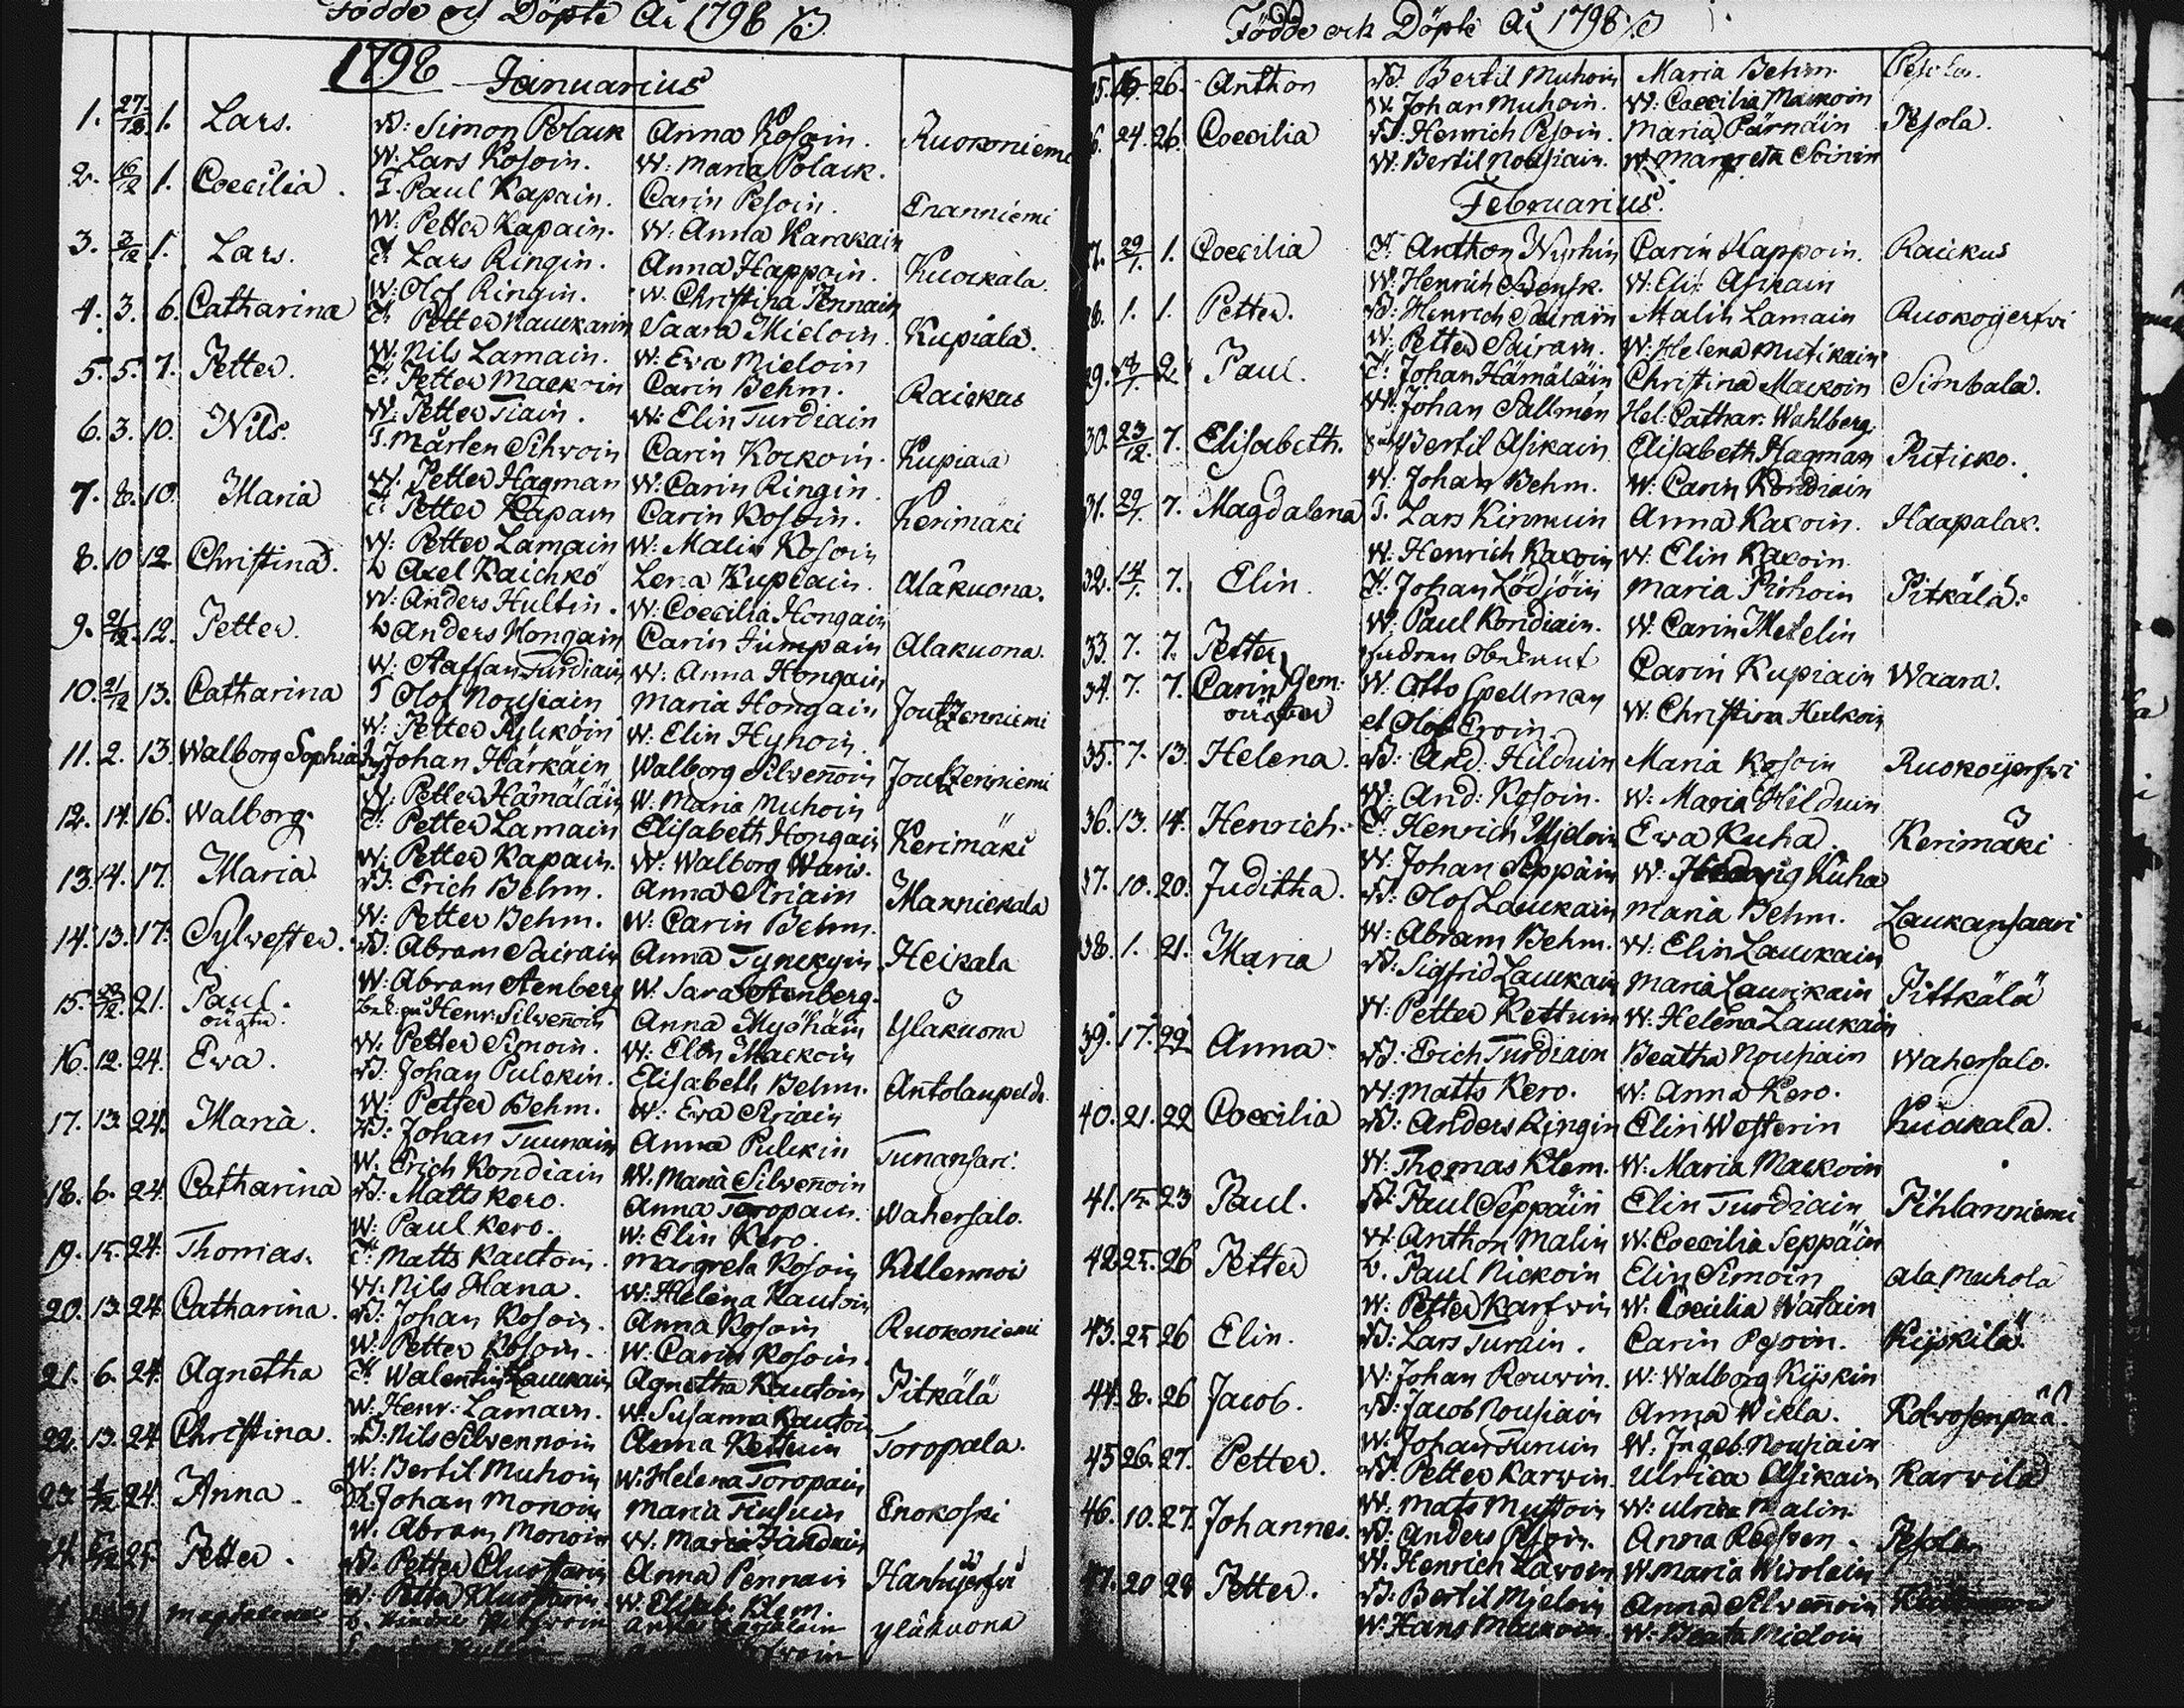 Födde och Döpte År 1798
1798 Januarius
1. 27/12 1. Lars. B: Simon Polack Anna Kosoin. Ruokoniemi
W. Lars Kosoin. W: Maria Polack.
2. 16/12 1. Coecilia. T. Paul Kapain. Carin Pesoin. Enanniemi
W: Petter Kapain. W: Anna Karakain
3. 3/12 1. Lars. T. Lars Ringin. Anna Happoin. Kuockala.
W: Olof Ringin. W. Christina Pennain
4. 3. 6. Catharina T. Petter Nauckarin Saara Mieloin. Kupiala.
W: Nils Lamain. W: Eva Mieloin
5. 5. 7. Petter. T. Petter Mackoin Carin Behm. Raickas
W: Petter Tiain. W: Elin Turdiain
6. 3. 10. Nils. T. Mårten Sihvoin Carin Kockoin. Kupiala
W. Petter Hagman W: Carin Ringin.
7. 8. 10. Maria T. Petter Kapain Carin Kosoin. Kerimäki
W. Petter Lamain W: Malin Kosoin
8. 10 12 Christina. L Axel Kaichkö Lena Kupiain. Alakuona.
W: Anders Hultin. W: Coecilia Hongain
9. 21/12. 12. Petter. L Anders Hongain Carin Jumpain Alakuona.
W: Staffan Turdiain W: Anna Hongain
10. 21/12 13. Catharina T Olof Nousiain Maria Hongain Joutzenniemi
W: Petter Pylcköin W: Elin Hyhoin.
11. 2. 13. Walborg Sophia Johan Härkäin Walborg Silvenoin Joutzenniemi
W: Petter Hämäläin W: Maria Muhoin
12. 14. 16. Walborg. T. Petter Lamain Elisabeth Hongain Kerimäki
W: Petter Kapain. W: Walborg Waris.
13. 14. 17. Maria. B: Erich Behm. Anna Siriain Mannickala
W: Petter Behm. W: Carin Behm.
14. 13. 17. Sylvester. B: Abram Sairain Anna Tynckyin Heikala
W: Abram Stenberg W. Sara Stenberg.
15. 21. Paul. Henr: Silvenoin Anna Myöhäin Yläkuona
oägta. W. Petter Simoin. W: Elin Mackoin
16. 12. 24. Ewa. B. Johan Pulckin. Elisabeth Behm. Antolanpeldo
W: Petter Behm. W: Eva Siriain
17. 13. 24. Maria. B: Johan Tuunain Anna Pulckin Tunansari.
W. Erich Kondiain W. Maria Silvenoin
18. 6. 24. Catharina B: Matts Kero. Anna Toropain. Wahersalo.
W: Paul Kero. W: Elin Kero.
19. 15. 24. Thomas. T. Matts Kautoin. Margreta Kosoin
W: Nils Hana. W: Helena Kautoin
20. 13. 24. Catharina. B: Johan Kosoin. Anna Kosoin Ruokoniemi
W: Petter Kosoin. W: Carin Kosoin.
21. 6. 24. Agnetha T. Walentin Lauckain Agnetha Kautoin Pitkälä
W: Henr: Lamain. W: Susanna Kautoin
22. 13. 24 Christina. B: Nils Silvennoin Anna Kettuin Toropala.
W: Bertil Muhoin W. Helena Toropain
23. 24. Anna. Johan Monoin Maria Enokoski
W. Abram Monoin W: Maria
25. Petter. B. Petter Clusfarin Anna Pennain
W: Petter W. Elisab. Klem.
Magdalena Yläkuona
Födde och Döpte År 1798
26. Anthon B. Bertil Muhoin Maria Behm. Pesola.
W. Johan Muhoin. W: Coecilia Mackoin
24. 26. Coecilia B: Henrich Pesoin. Maria Pärnäin Pesola.
W: Bertil Nousiain. W. Margreta Soinin
Februarius.
29/1. 1. Coecilia T. Anthon Nyrhin Carin Happoin. Raickus
W: Henrich Svensk. W: Elis: Asikain
28. 1. 1. Petter. B: Henrich Sairain Malin Lamain Ruokojerfvi
W. Petter Sairain. W: Helena Mutikain
29. 2. Paul. T: Johan Hämäläin Christina Mackoin Simbala.
W: Johan Sallmén Hel: Cathar: Wahlberg.
30. 23/12. 7. Elisabeth. Bertil Asikain Elisabeth Hagman Puticko.
W. Johan Behm. W: Carin Kondiain
31. 29/1. 7. Magdalena T. Lars Kinnuin Anna Kaxoin. Haapalax.
W. Henrich Kaxoin W: Elin Kaxoin
32. 14/1. 7. Elin. T: Johan Lödjöin Maria Pirhoin Pitkälä.
W: Paul Kondiain. W: Carin Metelin
33. 7. 7. Petter fadren obekant Carin Kupiain Waara.
34. 7. 7. Carin Gem: W: Otto Spellman W: Christina Hulkoin
oägta et Olof Eroin
35. 7. 13. Helena. B: And: Hilduin Maria Kosoin Ruokojerfvi
W: And: Kosoin. W: Maria Hilduin
36. 13. 14. Henrich. T: Henrich Mjeloin Ewa Kuha. Kerimäki
W: Johan Seppäin W: Hedvig Kuha
37. 10. 20. Juditha. B: Olof Lauckain Maria Behm. Laukansaari
W: Abram Behm. W: Elin Lauckain
38. 1. 21. Maria B: Sigfrid Lauckain Maria Lauckain Pittkälä
W. Petter Kettuin W: Helena Lauckain
39. 17. 22 Anna B: Erich Turdiain Beatha Nousiain Wahersalo.
W: Matts Kero. W: Anna Kero.
40. 21. 22 Coecilia B: Anders Ringin Elin Westerin Kuokala.
W: Thomas Klem. W: Maria Mackoin
41. 15. 23 Paul. B: Paul Seppäin Elin Turdiain Pihlanniemi
W: Anthon Malin W. Coecilia Seppäin
42 25. 26 Petter L. Paul Nickoin Elin Simoin Ala Muhola
W. Petter Karfwin W. Coecilia Watain
43. 25 26 Elin. B: Lars Turain. Carin Pesoin. Kyskilä.
W: Johan Rouvin. W: Walborg Kyskin
44. 8. 26 Jacob. B: Jacob Nousiain Anna Wikla. Kolvosenpää.
W. Johan Turuin W. Ingeb. Nousiain
45 26. 27. Petter. B. Petter Karwin. Ulrica Asikain Karvila
W: Mats Mustoin W: Ulrica Malin.
46. 10. 27. Johannes. B: Anders Pesoin. Anna Redsven. Pesola
W: Henrich Lavoin W. Maria Wirolain
47. 20 28 Petter. B: Bertil Mjeloin Anna Silvenoin
W: Hans Mackoin. W: Beata Mieloin